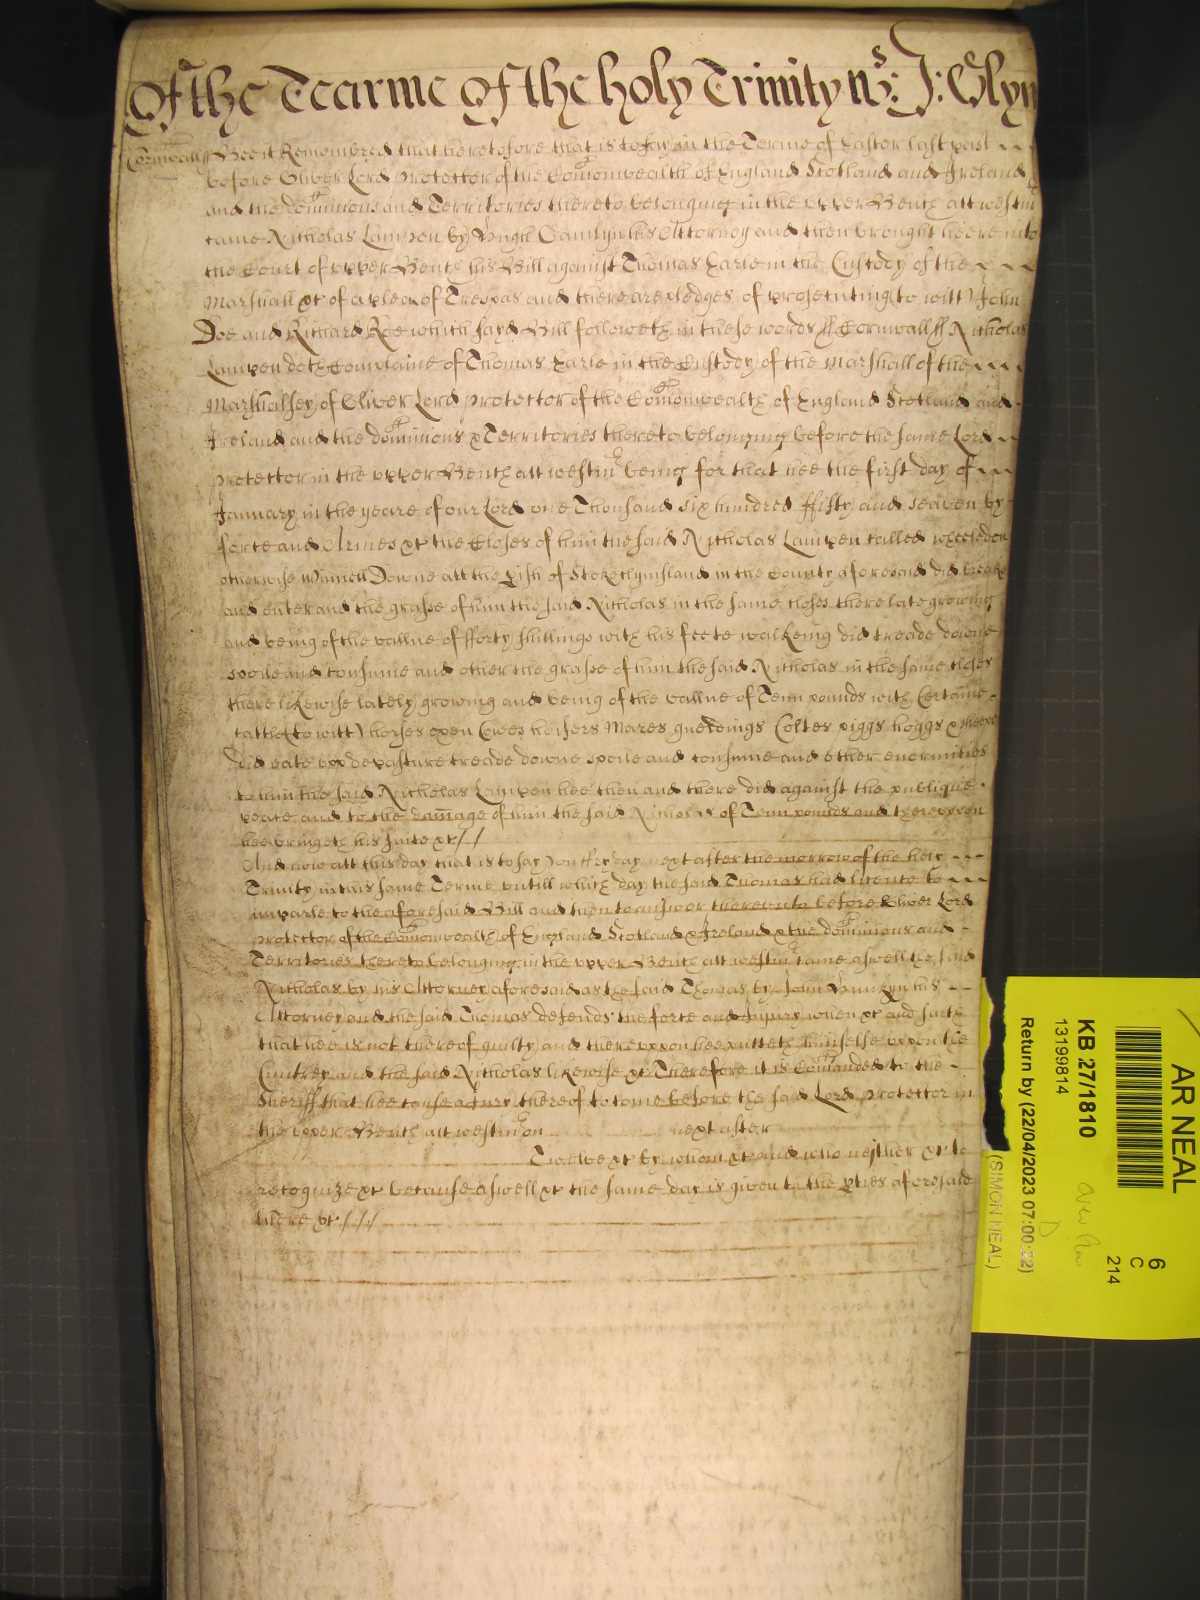 Of the Tearme Of the holy Trinity
Cornwall ss Bee it Remembred that heretofore that is to say in the Terme of Easter last past
before Oliver Lord Protector of the Comonwealth of England Scotland and Ireland
and the dominions and Territories thereto belonging in the upper Bench att westm
came Nicholas Lampen by Hugh his Attorney and then brought heere into
the Court of upper Bench his Bill against Thomas Earle in the Custody of the
Marshall &c of a plea of Trespas and there are pledges of prosecuting (to witt) John
Doe and Richard Roe which sayd Bill followeth in these words ss Cornwall ss Nicholas
Lampen doth Complaine of Thomas Earle in the Custody of the Marshall of the
Marshalsey of Oliver Lord protector of the Comonwealth of England Scotland and
Ireland and the dominions & Territories thereto belonging before the same Lord
protector in the upper Bench att westm being for that hee the first day of
January in the yeare of our Lord one Thousand six hundred ffifty and seaven by
force and Armes &c the Closes of him the said Nicholas Lampen called
otherwise Downe att the pish of Stokeclymsland in the County aforesaid did breake
and enter and the grasse of him the said Nicholas in the same closes there late growing
and being of the vallue of fforty shillings with his feete walkeing did treade downe
spoile and consume and other the grasse of him the said Nicholas in the same closes
there likewise lately growing and being of the vallue of Tenn pounds with Certaine
cattle (to witt) horses oxen Cowes heifers Mares gueldings Coltes piggs hoggs & sheepe
did eate upp depasture treade downe spoile and consume and other enormities
to him the said Nicholas Lampen hee then and there did against the publique
peace and to the damage of him the said Nicholas of Tenn pounds and thereuppon
hee bringeth his suite &c //
And now att this day that is to say on ffryday next after the morrow of the holy
Trinity in this same Terme untill which day the said Thomas had licence to
imparle to the aforesaid Bill and then to answer thereunto before Oliver Lord
protector of the Comonwealth of England Scotland & Ireland & the dominions and
Territories thereto belonging in the upper Bench att westm came aswell the said
Nicholas by his Attorney aforesaid as the said Thomas by John his
Attorney and the said Thomas defends the force and Injury when &c and saith
that hee is not thereof guilty and thereuppon hee putteth himselfe uppon the
Cuntrey and the said Nicholas likewise &c Therefore it is Comanded to the
Sheriff that hee cause a Jury thereof to come before the said Lord protector in
the upper Bench att westm on next after
Twelve &c by whom &c and who neither &c to
recognize &c because aswell &c the same day is given to the pties aforesaid
there &c ///
AR NEAL
6
C
214
KB 27/1810
13199814
Return by (22/04/2023 07:00:22)
(SIMON NEAL)